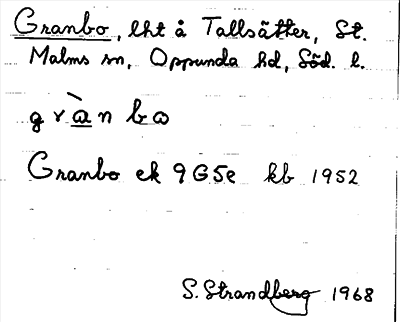 Granbo, lht å Tallsätter, St.
Malms sn, Oppunda hd, Söd. l.
gràn bω
Granbo ek 9G5e kb 1952
S. Strandberg 1968